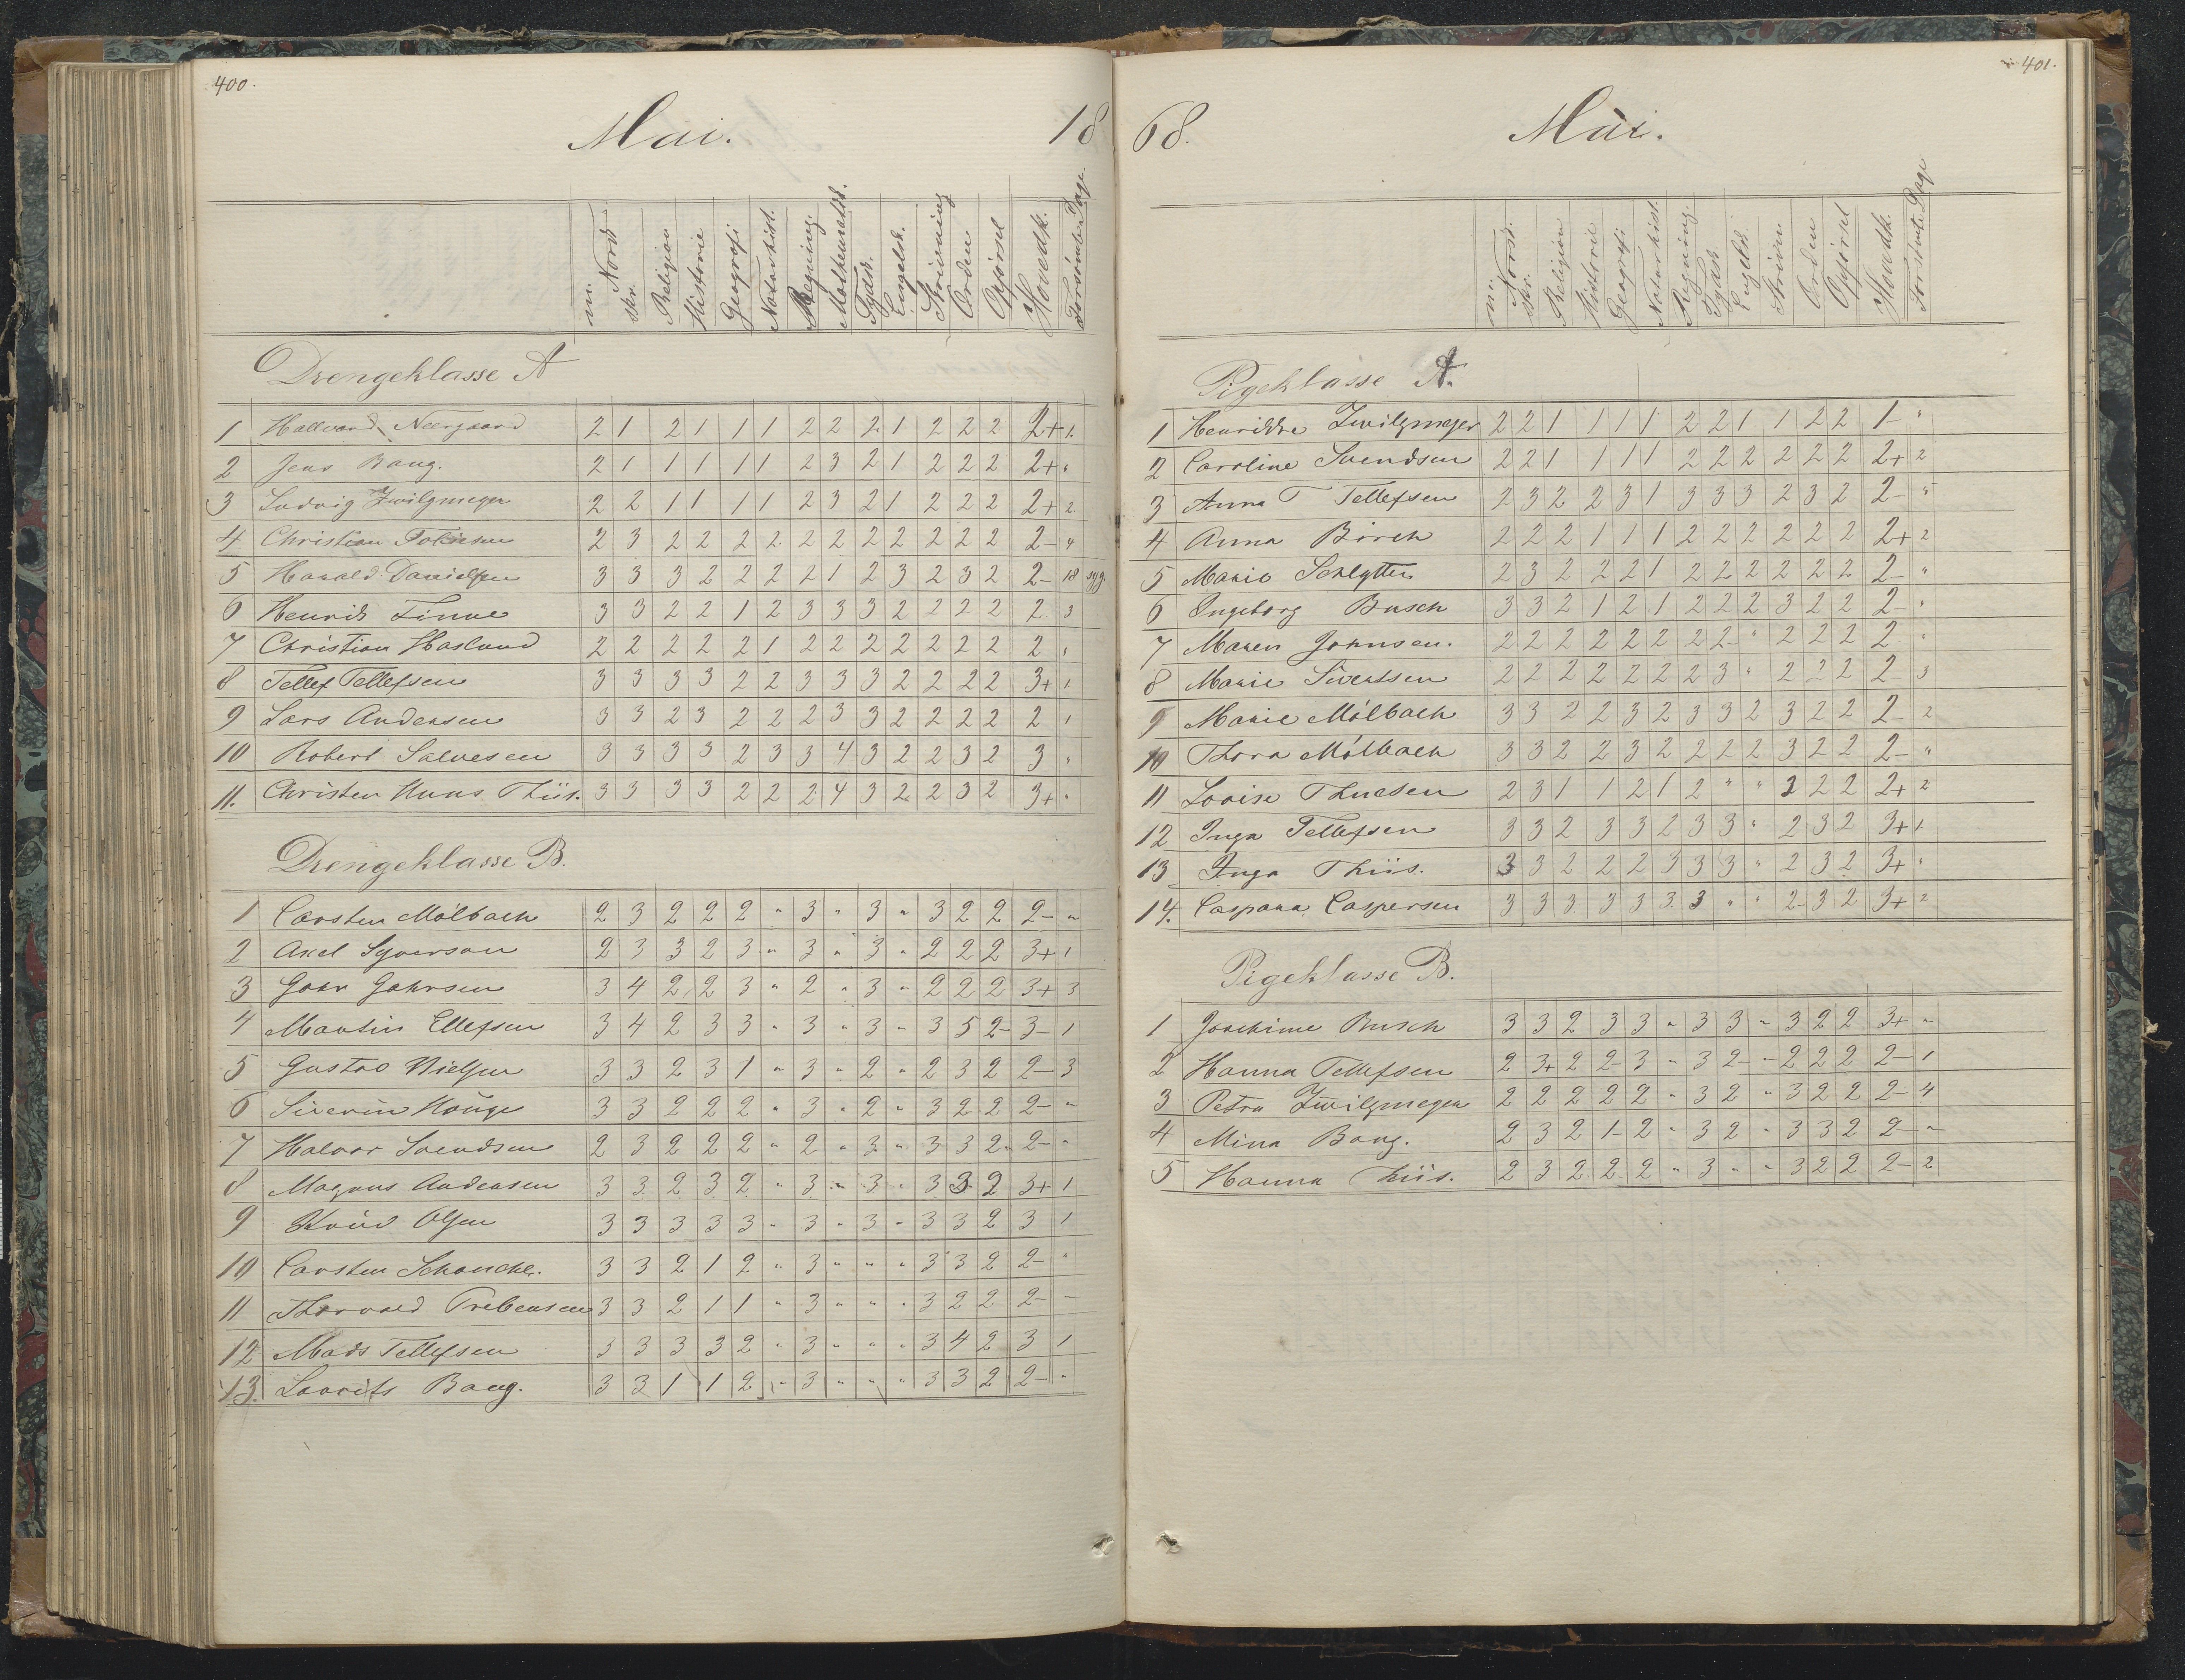 400.
Mai. 18
m. Norsk skr. Religion Historie Geografi Naturhist. Regning. Mathematik. Tydsk. Engelsk. Skrivning Orden Opførsel Hovedk. Forsømte Dage.
Drengeklasse A
1 Hallvard Neergaard 2 1 2 1 1 1 2 2 2 1 2 2 2 2+ 1.
2 Jens Bang. 2 1 1 1 1 1 2 3 2 1 2 2 2 2+ "
3 Ludvig Zwilgmeyer 2 2 1 1 1 1 2 3 2 1 2 2 2 2+ 2
4 Christian Tobiesen 2 3 2 2 2 2 2 2 2 2 2 2 2 2- 4
5 Harald Danielsen 3 3 3 2 2 2 2 1 2 3 2 3 2 2- 18 syg.
6 Henrik Finne 3 3 2 2 1 2 3 3 3 2 2 2 2 2 3
7 Christian Haslund 2 2 2 2 2 1 2 2 2 2 2 2 2 2 "
8 Tellef Tellefsen 3 3 3 3 2 2 3 3 3 2 2 2 2 3+ 1
9 Lars Andersen 3 3 2 3 2 2 2 3 3 2 2 2 2 2 1
10 Robert Salvesen 3 3 3 3 2 3 3 4 3 2 2 3 2 3 "
11. Christen Huus Thiis. 3 3 3 3 2 2 2 4 3 2 2 3 2 3+ "
Drengeklasse B.
1 Carsten Mölbach 2 3 2 2 2 " 3 " 3 " 3 2 2 2- "
2 Axel Syverson 2 3 3 2 3 " 3 " 3 " 2 2 2 3+ 1
3 John Johnsen 3 4 2 2 3 " 2 " 3 " 2 2 2 3+ 3
4 Martin Ellefsen 3 4 2 3 3 " 3 " 3 " 3 5 2- 3- 1
5 Gustav Nielsen 3 3 2 3 1 " 3 " 2 " 2 3 2 2- 3
6 Siverin Houge 3 3 2 2 2 " 3 " 2 " 3 2 2 2- "
7 Halvor Svendsen 2 3 2 2 2 " 2 " 3 " 3 3 2 2- "
8 Magnus Andersen 3 3 2 3 2 " 3 " 3 " 3 3 2 3+ 1
9 Knud Olsen 3 3 3 3 3 " 3 " 3 " 3 3 2 3 1
10 Carsten Schanche. 3 3 2 1 2 " 3 " " " 3 3 2 2- "
11 Thorvald Trebensen 3 3 2 1 1 " 3 " " " 3 2 2 2- "
12 Mads Tellefsen 3 3 3 3 2 " 3 " " " 3 4 2 3 1
13. Laurits Bang. 3 3 1 1 2 " 3 " " " 3 3 2 2- "
401.
68. Mai.
m. Norsk. skr. Religion Historie Geografi Naturhist. Regning. Tydsk Engelsk Skrivn Orden Opførsel Hovedk. Forsømte Dage
Pigeklasse A.
1 Henrikke Zwilgmeyer 2 2 1 1 1 1 2 2 1 1 2 2 1- "
2 Caroline Svendsen 2 2 1 1 1 1 2 2 2 2 2 2 2+ 2
3 Anna T Tellefsen 2 3 2 2 3 1 3 3 3 2 3 2 2- "
4 Anna Börch 2 2 2 1 1 1 2 2 2 2 2 2 2+ 2
5 Marie Schlytter 2 3 2 2 2 1 2 2 2 2 2 2 2- "
6 Ingeborg Busch 3 3 2 1 2 1 2 2 2 3 2 2 2- "
7 Maren Johnsen. 2 2 2 2 2 2 2 2- " 2 2 2 2 "
8 Marie Sivertsen 2 2 2 2 2 2 2 3 " 2 2 2 2- 3
9 Marie Mölbach 3 3 2 2 3 2 3 3 2 3 2 2 2- 2
10 Thora Mölbach 3 3 2 2 3 2 2 2 2 3 2 2 2- "
11 Lovise Thuesen 2 3 1 1 2 1 2 " " 2 2 2 2+ 2
12 Inga Tellefsen 3 3 2 3 3 2 3 3 " 2 3 2 3+ 1
13 Inga Thiis. 3 3 2 2 2 3 3 3 " 2 3 2 3+ "
14. Caspara Caspersen 3 3 3 3 3 3 3 " " 2 3 2 3+ 2
Pigeklasse B.
1 Joachime Busch 3 3 2 3 3 " 3 3 " 3 2 2 3+ "
2 Hanna Tellefsen 2 3+ 2 2- 3 " 3 2- " 2 2 2 2- 1
3 Petra Zwilgmeyer 2 2 2 2 2 " 3 2 " 3 2 2 2- 4
4 Mina Bang. 2 3 2 1- 2 " 3 2 " 3 3 2 2- "
5 Hanna Thiis. 2 3 2 2 2 " 3 " " 3 2 2 2- 2